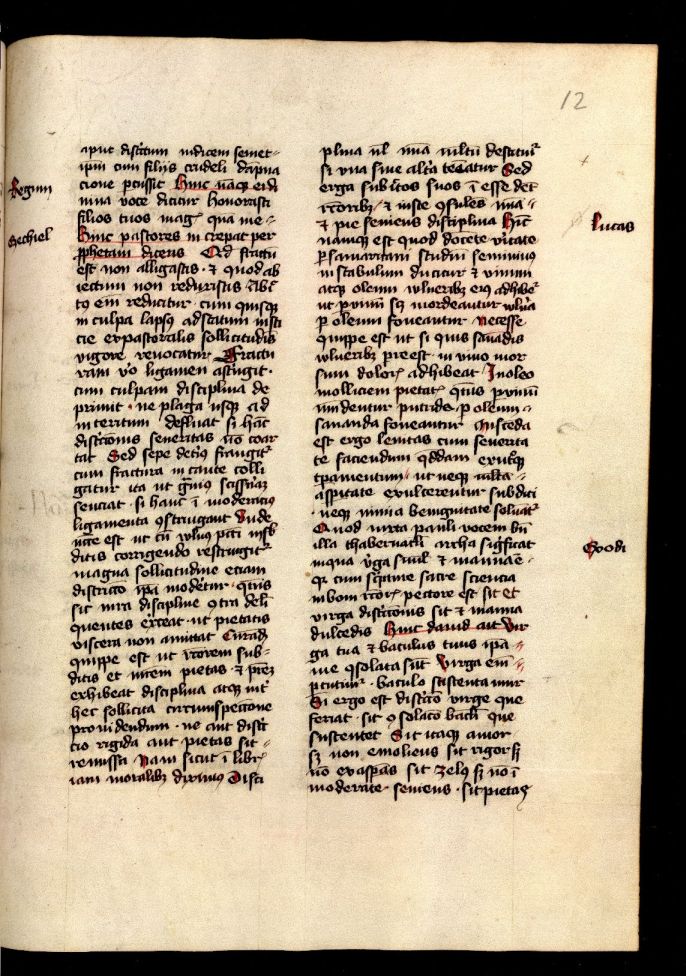 12
Regum
Sechiel
aput districtum iudicem semet-
ipm cum filiis crudeli dāpna
cione pcussit Hinc nāq eidē
diuina voce dicitur honorasti
filios tuos mag qua me
Hinc pastores in crepat per
pphetam dicens Qd fractū
est non alligastis · & quod ab
iectum non reduxistis Abiec
tꝫ em reducitur · cum quisqꝫ
in culpa lapsꝰ ad statum iusti
cie expastoralis sollicitudīs
vigore reuocatur Fractu
ram vo ligamen astrigit ·
cum culpam disciplina de
primit · ne plaga usqꝫ ad
interitum defluat si hāc
districcionis seueritas nō coar
tat Sed sepe deteriꝰ frangit
cum fractura in caute colli
gatur ita ut scissurā
senciat · si hanc ī moderaciꝰ
ligamenta ɔstringant Vnde
est ut cū vulnꝰ peccati in sub
ditis corrigendo restringit
magna sollicitudine eciam
districtio ipa moderetur · qtinꝰ
sic iura discipline ɔtra deli
quentes exerceat · ut pietatis
viscera non amittat Curandū
quippe est ut rectorem sub-
ditis et matrem pietas · & prem
exhibeat disciplina atqꝫ int
hec sollicita circumspeccione
prouidendum · ne aut distric
tio rigida aut pietas sit
remissa Nam sicut ī libris
iam moralibꝫ diximus Disci
plina ul mia multū destituit
si vna sine altera teneatur Sed
erga subditos suos ī esse debet
rectoribꝫ · & iuste ɔsulens mīa
& pie seuiens disciplina Hinc
namqꝫ est quod docente vitate
p samaritani studiū semiuiuꝰ
in stabulum ducitur & vinum
atqꝫ oleum vulneribꝫ eiꝰ adhibet
ut p vinū scꝫ mordeantur vulnera
p oleum foueantur · Necesse
quippe est ut si quis sanādis
vulneribꝫ preest · in vino mor
sum doloris adhibeat · In oleo
molliciem pietatis qtinus p vinū
mundentur putrida · p oleum
sananda foueantur Miscenda
est ergo lenitas cum seuerita
te faciendum qddam ex utroqꝫ
tpamentum · ut neqꝫ multa
asperitate exulcerentur subditi
· neqꝫ nimia benignitate soluātur
Quod iuxta pauli vocem bn
illa thabernacli archa significat
inqua vga simul & manna est
Qr cum scpture sacre sciencia
in boni rectoris pectore est sit et
virga districcionis sit & manna
dulcedīs Hinc dauid ait Vir
ga tua & baculus tuus ipa
me ɔsolata sūt Virga em
pcutimur · baculo sustentamur
Si ergo est districtio virge que
feriat · sit ɔsolacō baculi que
sustentet Sit itaqꝫ amor
sꝫ non emoliens sit rigor sꝫ
nō exaspans sit zelꝰ sꝫ nō ī
moderate · seuiens · sit pietas
Lucas
Exodi